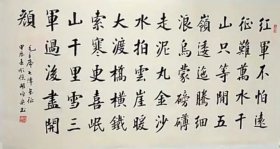 紅軍不怕遠
征難萬水千
山只等閑五
嶺逶迤騰細
浪烏蒙磅礴
走泥丸金沙
水拍雲崖暖
大渡橋橫鐵
索寒更喜岷
山千里雪三
軍過後盡開
顏
毛主席七律長征